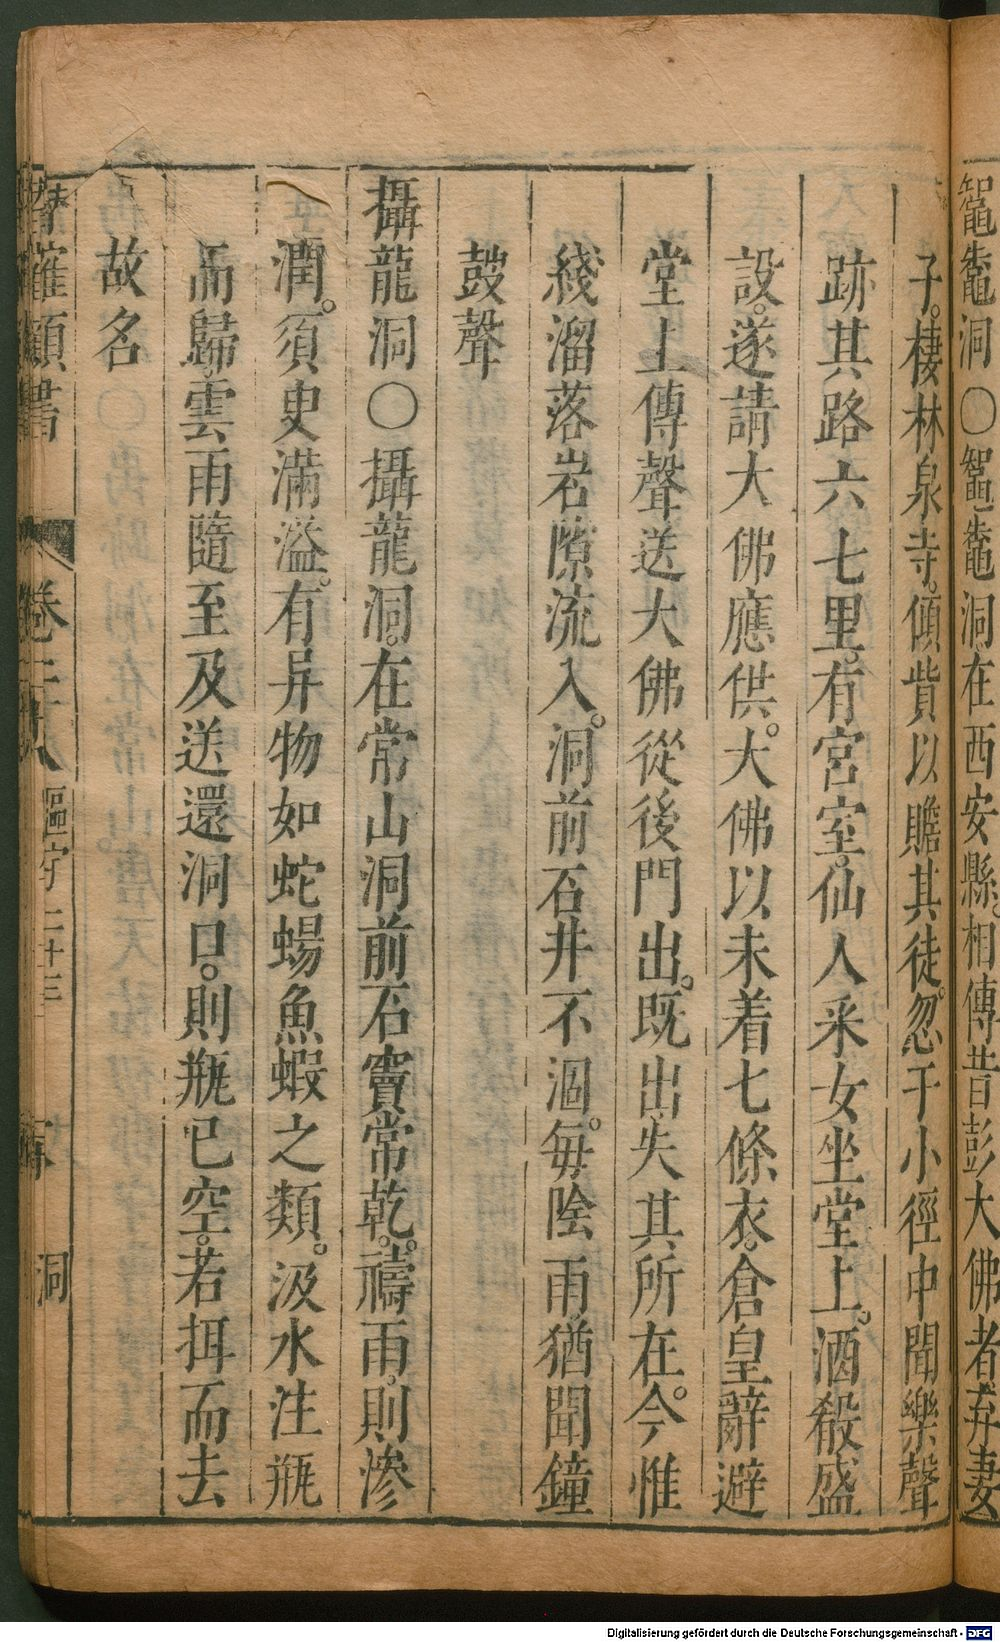 洞○洞在西安縣。相傳昔彭大佛者弃妻
子。棲林泉寺。傾貲以贍其徒。忽于小徑中聞樂聲
跡其路六七里。有宮室。仙人釆女坐堂上。酒殽盛
設。遂請大佛應供。大佛以未着七條衣。倉皇辭避
堂上傳聲送大佛從後門出。既出失其所在。今惟
綫溜落岩隙流入。洞前石井不涸。毎陰雨猶聞鐘
鼓聲
攝龍洞○攝龍洞。在常山洞前石竇常乾。禱雨。則滲
潤。須史滿溢。有异物如蛇蜴魚蝦之類。汲水注瓶
而歸。雲雨隨至及送還洞口。則瓶已空。若挕而去
故名
羅頴書 卷二十八 區宇二 十三 洞
Digitalisierung gefördert durch die Deutsche Forschungsgemeinschaft - DFG